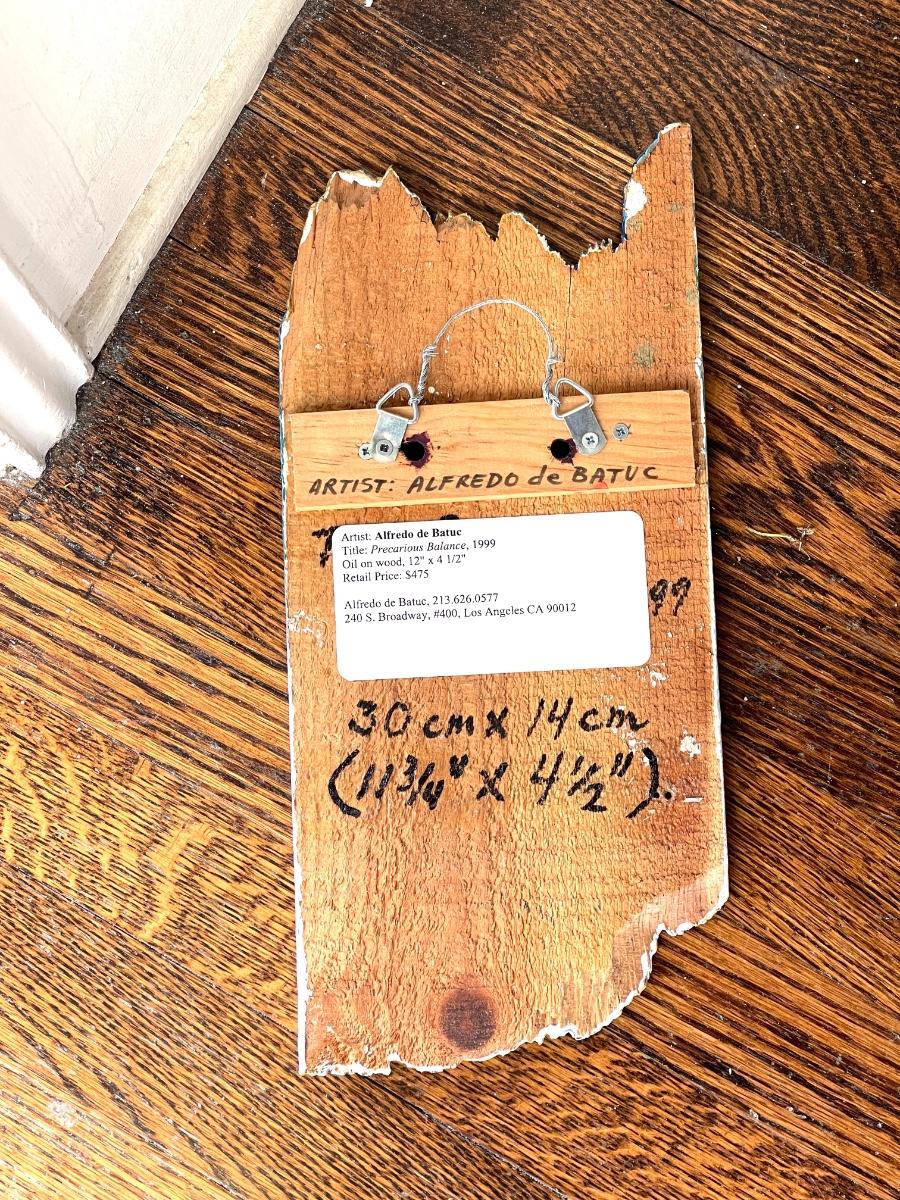 ARTIST: ALFREDO de BATUC
Artist: Alfredo de Batuc
Title: Precarious Balance, 1999
Oil on wood, 12" x 4 1/2"
Retail Price: $475
Alfredo de Batuc, 213.626.0577
240 S. Broadway, #400, Los Angeles CA 90012
99
30 cm x 14 cm
(11 3/4" x 4 1/2").